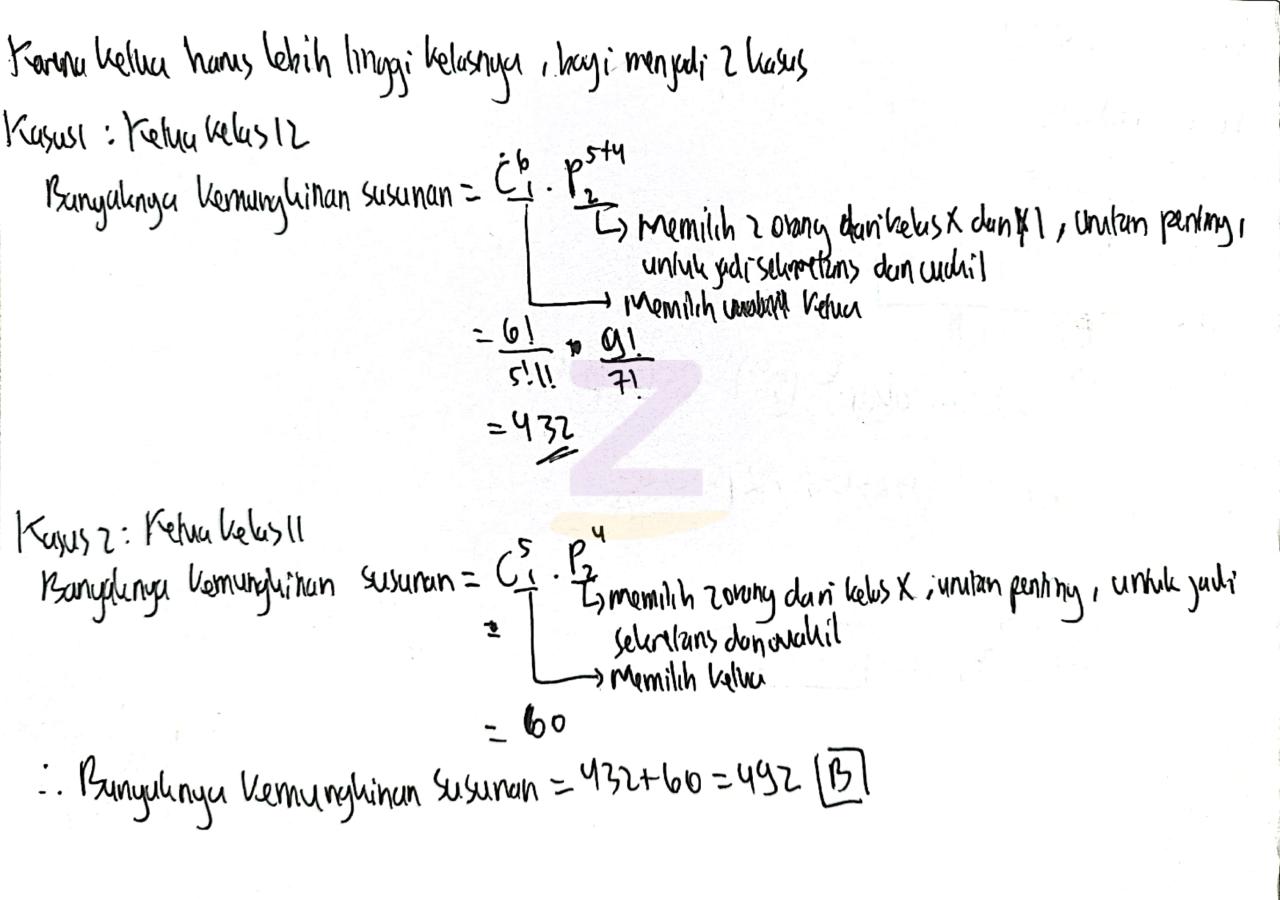 Karena ketua harus lebih tinggi kelasnya, bagi menjadi 2 kasus
Kasus 1 : Ketua kelas 12
Banyaknya kemungkinan susunan = C₁⁶ . P₂⁵⁺⁴
↳ Memilih 2 orang dari kelas X dan X1, urutan penting,
untuk jadi sekretaris dan wakil
→ Memilih Ketua
= 6!/5!1! • 9!/7!
= 432
Z
Kasus 2 : Ketua kelas 11
Banyaknya kemungkinan susunan = C₁⁵ . P₂⁴
↳ memilih 2 orang dari kelas X, urutan penting, untuk jadi
=
sekretaris dan wakil
→ Memilih ketua
= 60
∴ Banyaknya kemungkinan susunan = 432+60 = 492 B